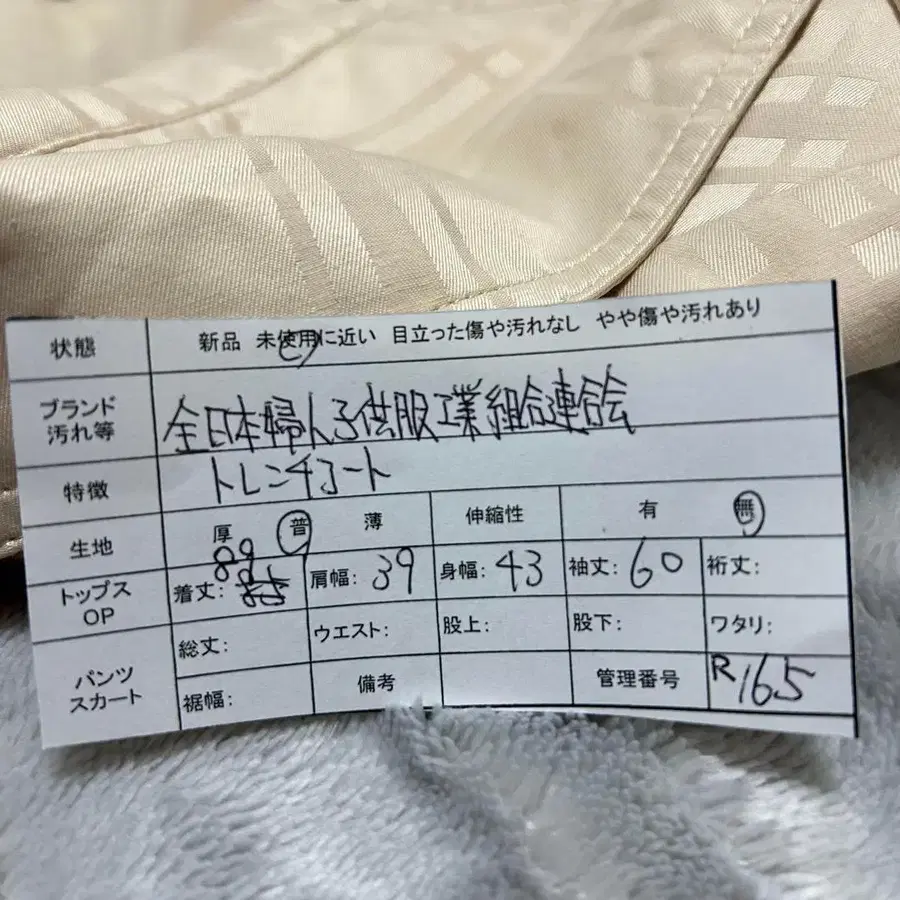 状態 新品 未使用に近い 目立った傷や汚れなし やや傷や汚れあり
ブランド
汚れ等 全日本婦人子供服工業組合連合会
特徴 トレンチコート
生地 厚 普 薄 伸縮性 有 無
89
トップス
OP 着丈: 肩幅: 39 身幅: 43 袖丈: 60 裄丈:
パンツ
スカート 総丈: ウエスト: 股上: 股下: ワタリ:
裾幅: 備考 管理番号 R165